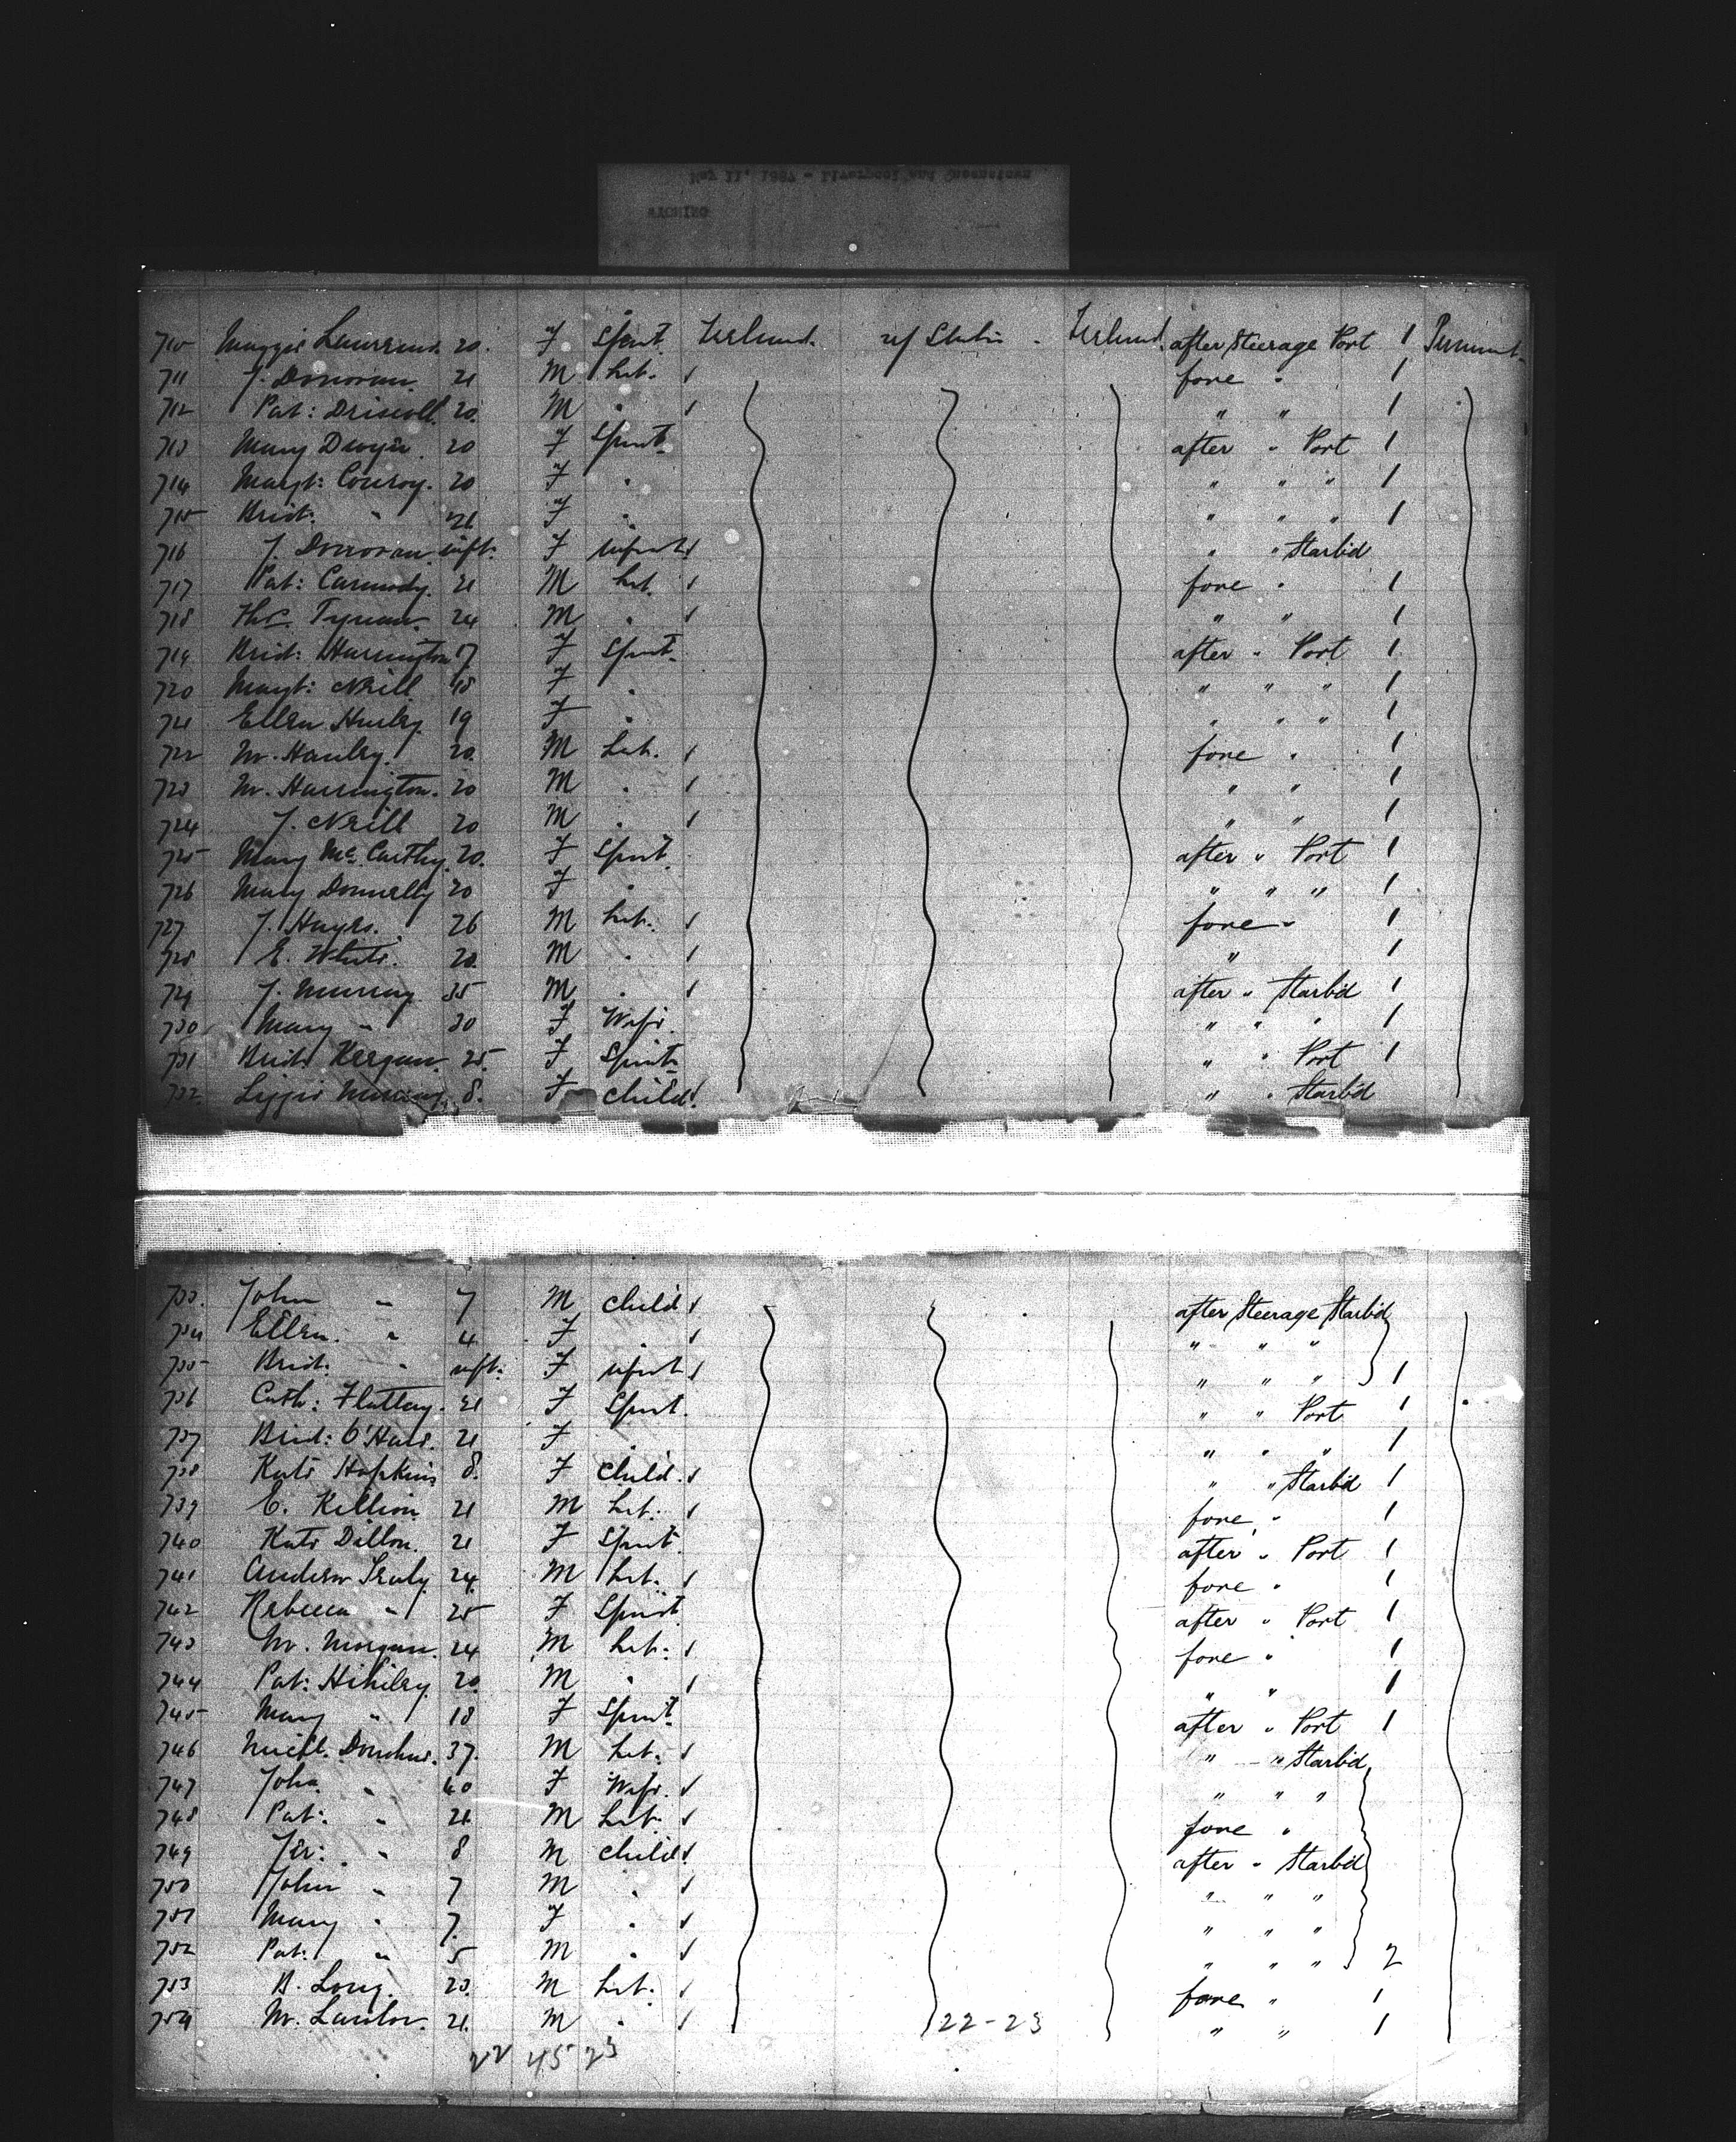 May 11, 1887 - Liverpool and Queenstown
WYOMING
710 Maggie Laurens. 20. F Spinst. Ireland. U/ States. Ireland. after Steerage Port 1 Permnt.
711 J. Donovan. 21 M Lab. fore " 1
712 Pat: Driscoll. 20. M " " " 1
713 Mary Dwyer. 20 F Spinst. after " Port 1
714 Margt: Conroy. 20 F " " " " 1
715 Brid: " 21 F " " " " 1
716 J. Donovan inft. F infant " " Starb'd
717 Pat: Carmody. 21 M Lab. fore " 1
718 Tynan. 24 M " " " 1
719 Brid: Harrington 17 F Spinst. after " Port 1
720 Margt: Neill 18 F " " " " 1
721 Ellen Hurley 19 F " " " " 1
722 M. Hanley. 20. M Lab. fore " 1
723 M. Harrington. 20 M " " " 1
724 J. Neill 20 M " " " 1
725 Mary McCarthy. 20. F Spinst after " Port 1
726 Mary Donnelly 20 F " " " " 1
727 J. Hayes. 26 M Lab. fore " 1
728 E. White. 20. M " " 1
729 J. Murray 35 M " after " Starb'd 1
730 Mary " 30 F Wife. " " " 1
731 Brid: Keegan. 25. F Spinst " " Port 1
732 Lizzie Murray. 8. F child. " " Starb'd
733. John " 7 M child after Steerage Starb'd
734 Ellen. " 4 F " " " "
735 Brid. " inft. F infant " " " 1
736 Cath: Flattery. 21 F Spinst. " " Port 1
737 Brid: O'Hare. 21 F " " " " 1
738 Kate Hopkins 8. F Child. " " Starb'd 1
739 E. Killion 21 M Lab. fore " 1
740 Kate Dillon. 21 F Spinst. after " Port 1
741 Andrew 24 M Lab. fore " 1
742 Rebecca " 25 F Spinst after " Port 1
743 M. Morgan. 24 M Lab. fore " 1
744 Pat: 20. M " " " 1
745 Mary " 18 F Spinst. after " Port 1
746 Michl. Donohue. 37. M Lab. " " Starb'd
747 Joha. " 40 F Wife. " " "
748 Pat: " 21 M Lab. fore "
749 Jer: " 8 M child. after " Starb'd
750 John " 7 M " " " "
751 Mary " 7. F " " " "
752 Pat: " 5 M " " " " 2
753 B. Long. 23. M Lab. fore " 1
754 M. Lawlor. 21. M " 22-23 " " 1
22 45 23